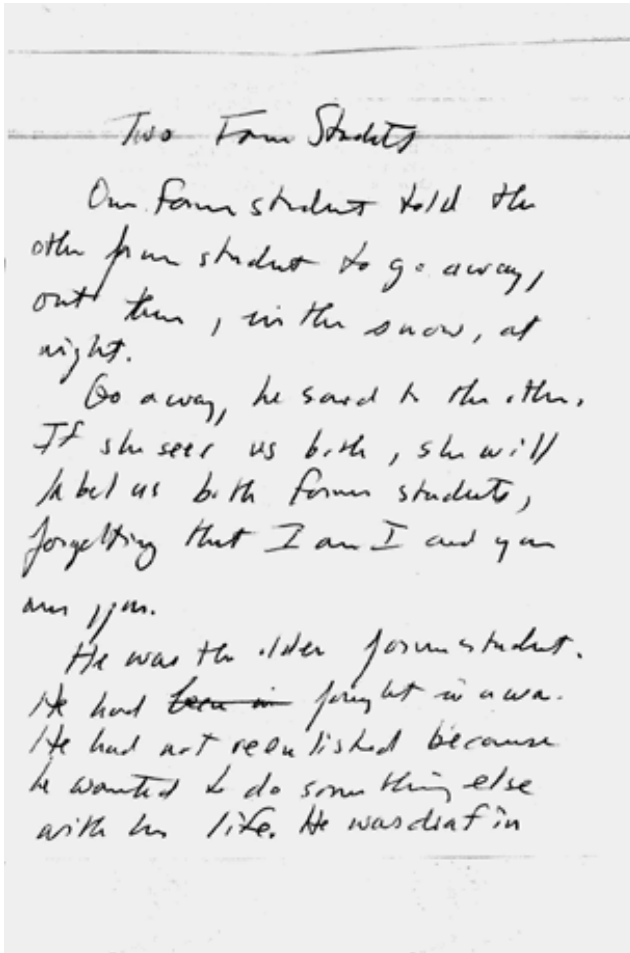 Two Former Students
One former student told the
other former student to go away,
out there, in the snow, at
night.
Go away, he said to the other.
If she sees us both, she will
label us both former students,
forgetting that I am I and you
are you.
He was the older former student.
He had been in fought in a war.
He had not reenlisted because
he wanted to do something else
with his life. He was deaf in